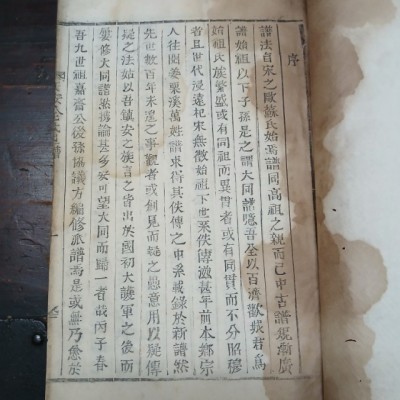 序
譜法自宋之歐蘇氏始焉譜同高祖之親而已中古譜規漸廣
譜始祖以下子孫是之謂大同譜惟吾全以百濟歡城君爲
始祖氏族繁盛或有同祖而異貫者或有同貫而不分昭穆
者且世代浸遠杞宋無徵始祖下世系佚傳滋甚年前本鄕宗
人往閱姜栗溪萬姓譜求得其佚傳之中系載錄於新譜然
先世數百年未遑之事觀者或創見而疑之愚意用以疑傳
疑之法姑以吾鎭安之族言之皆出於國初大護軍之後而
屢修大同譜然論甚多未可望大同而歸一者哉丙子春
吾九世祖嘉齋公後孫協議方編修派譜焉是或無乃愈於